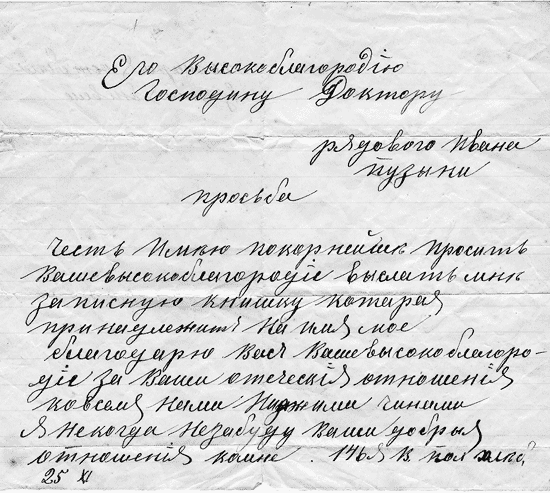 Его Высокоблагородію
Господину Доктору
рядового Ивана
Пузыни
просьба
Честь Имѣю покорнейше просить
Вашевысокоблагородіе выслать мнѣ
записную книшку котарая
принадлежитъ на имя мое
благодарю Васъ Вашевысокоблагоро-
діе за Ваши отеческія отношенія
ковсемя нами Нижними чинами
я некогда незабуду Ваши добрыя
отношенія комне . 146й В пол
25 XI